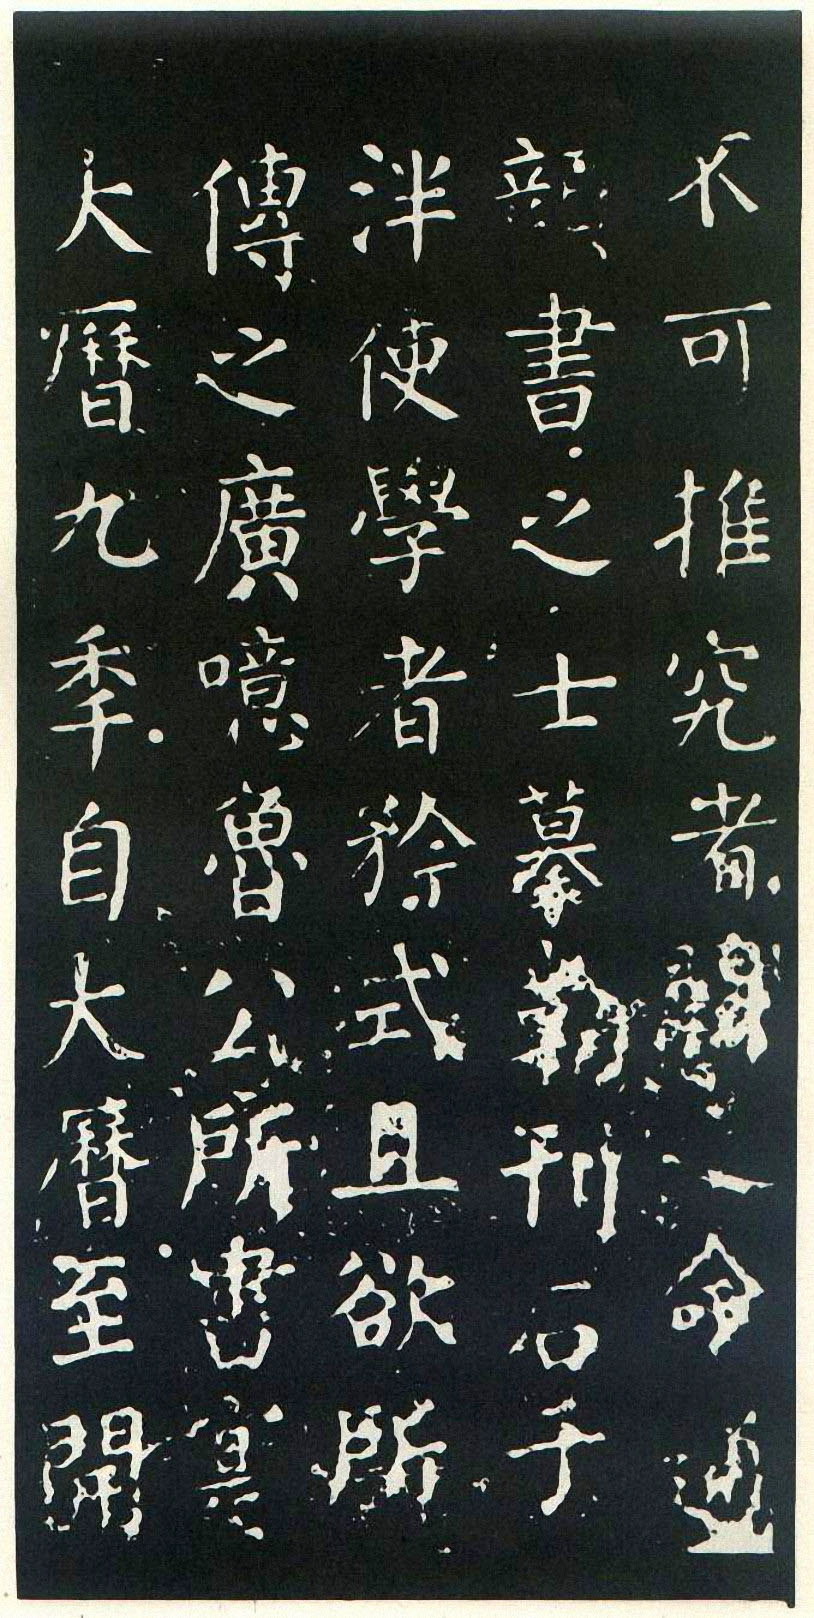 不可推究者闕之命通
顔書之士摹勒刊石于
泮使學者矜式且欲所
傳之廣噫魯公所書寔
大曆九季自大曆至開